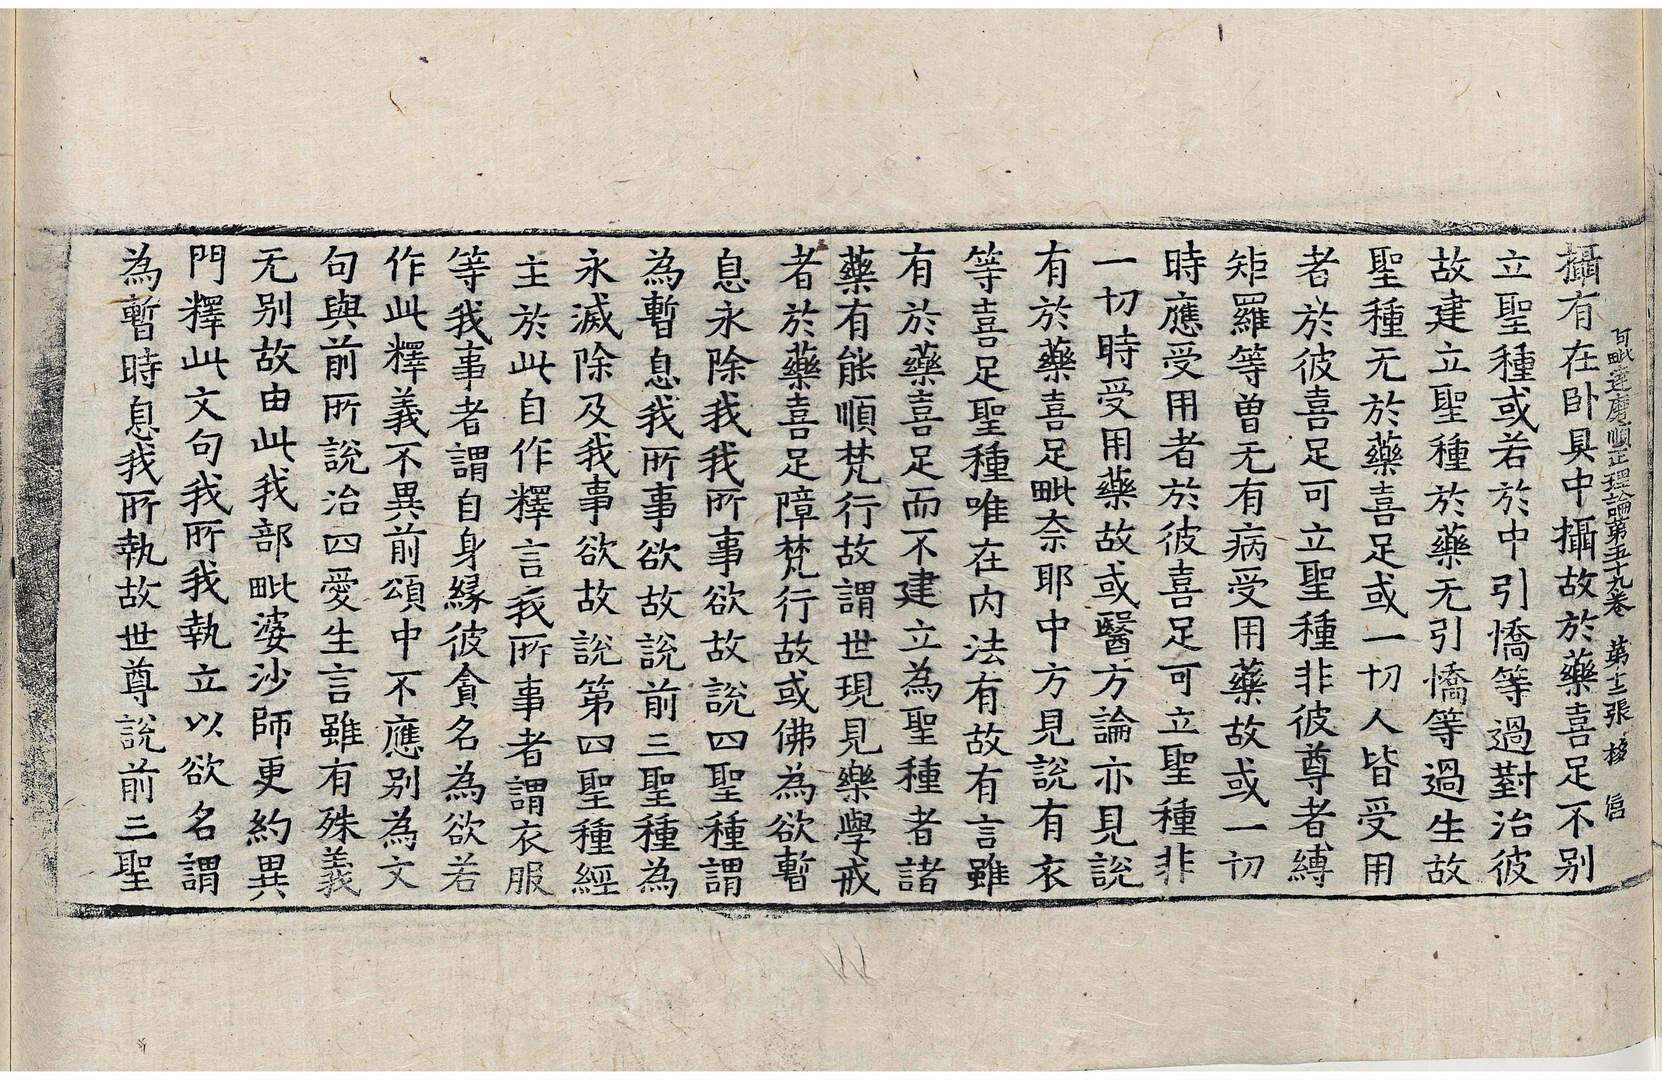 阿毗達磨順正理論第五十九卷 第十二張 移 㝛
攝有在卧具中攝故於藥喜足不别
立聖種或若於中引憍等過對治彼
故建立聖種於藥无引憍等過生故
聖種无於藥喜足或一切人皆受用
者於彼喜足可立聖種非彼尊者縛
矩羅等曽无有病受用藥故或一切
時應受用者於彼喜足可立聖種非
一切時受用藥故或醫方論亦見說
有於藥喜足毗奈耶中方見說有衣
等喜足聖種唯在内法有故有言雖
有於藥喜足而不建立為聖種者諸
藥有能順梵行故謂世現見樂學戒
者於藥喜足障梵行故或佛為欲暫
息永除我我所事欲故說四聖種謂
為暫息我所事欲故說前三聖種為
永滅除及我事欲故說第四聖種經
主於此自作釋言我所事者謂衣服
等我事者謂自身緣彼貪名為欲若
作此釋義不異前頌中不應别為文
句與前所說治四愛生言雖有殊義
无别故由此我部毗婆沙師更約異
門釋此文句我所我執立以欲名謂
為暫時息我所執故世尊說前三聖